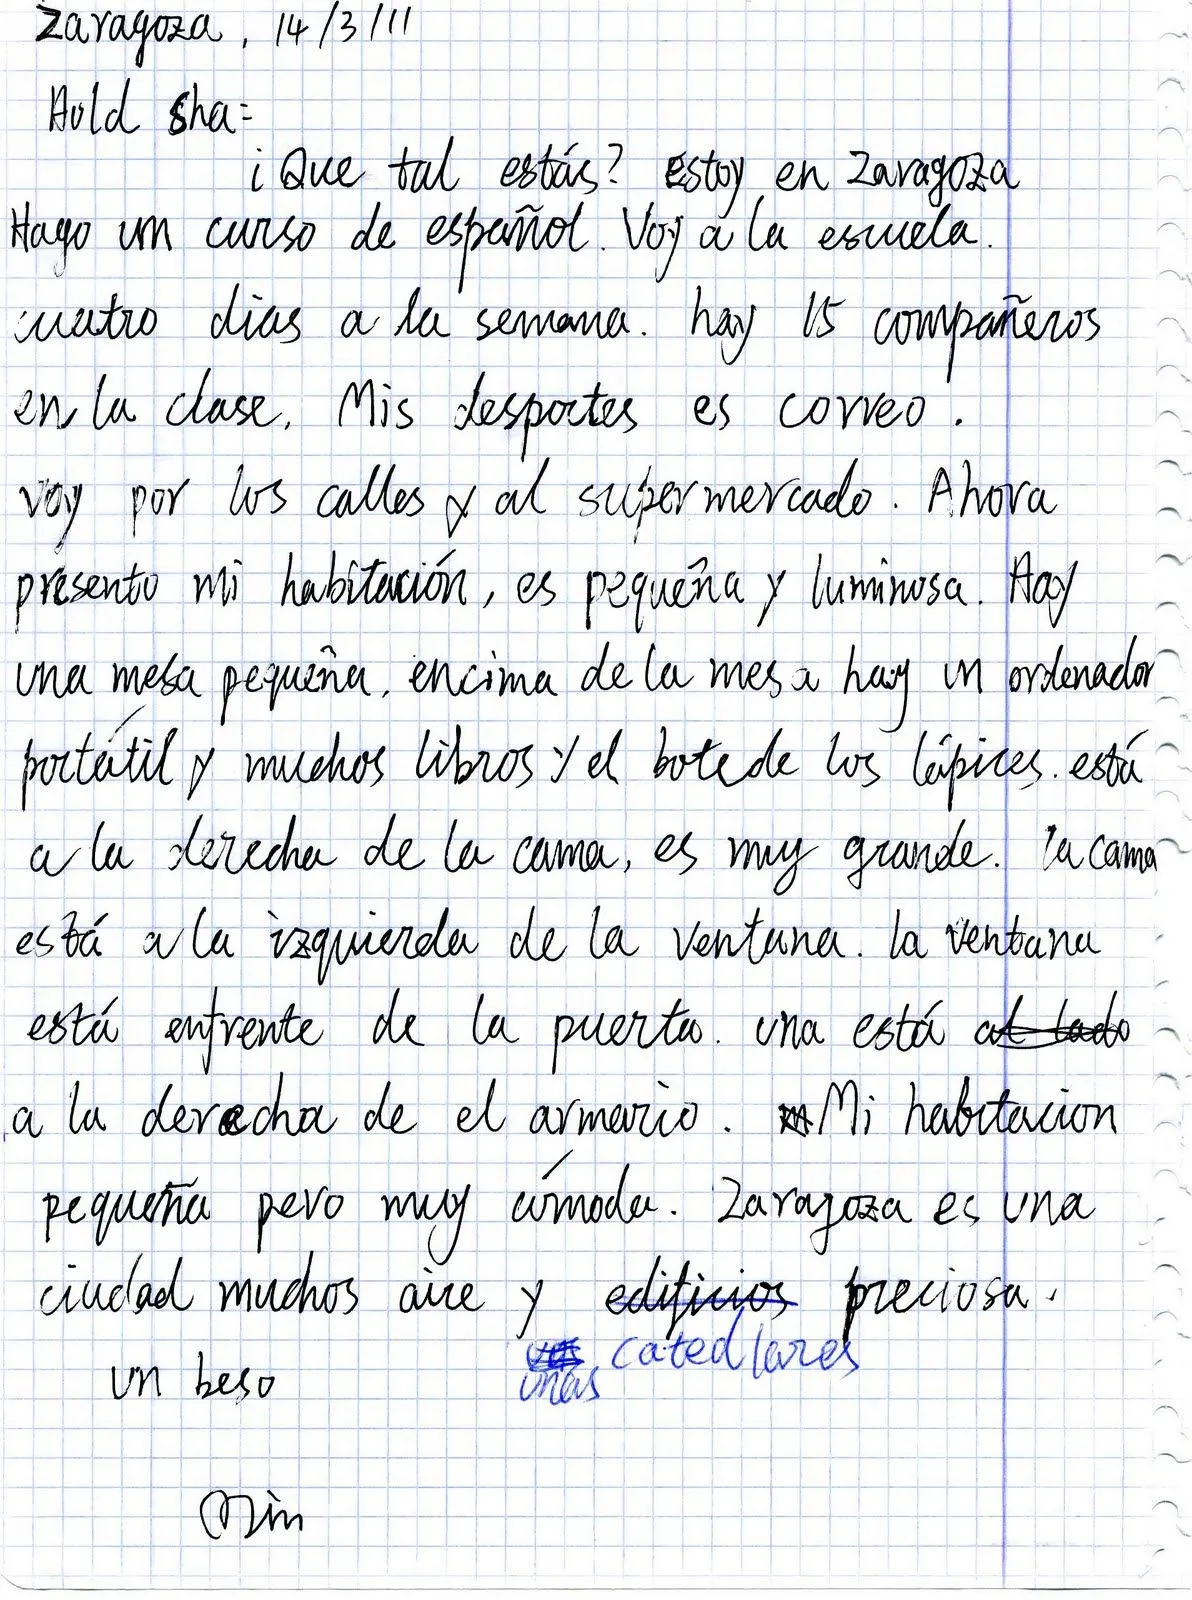 Zaragoza, 14/3/11
Auld sha:
¡Que tal estás? Estoy en Zaragoza
Hago un curso de español. Voy a la escuela.
cuatro dias a la semana. hay 15 compañeros
en la clase. Mis desportes es correo.
voy por los calles y al supermercado. Ahora
presento mi habitación, es pequeña y luminosa. Hay
una mesa pequeña, encima de la mesa hay un ordenador
portátil y muchos libros y el bote de los lápices. está
a la derecha de la cama, es muy grande. la cama
está a la izquierda de la ventana. la ventana
está enfrente de la puerta. una está al lado
a la derecha de el armario. Mi habitacion
pequeña pero muy cómoda. Zaragoza es una
ciudad muchos aire y edificios preciosa.
unas catedlares
un beso